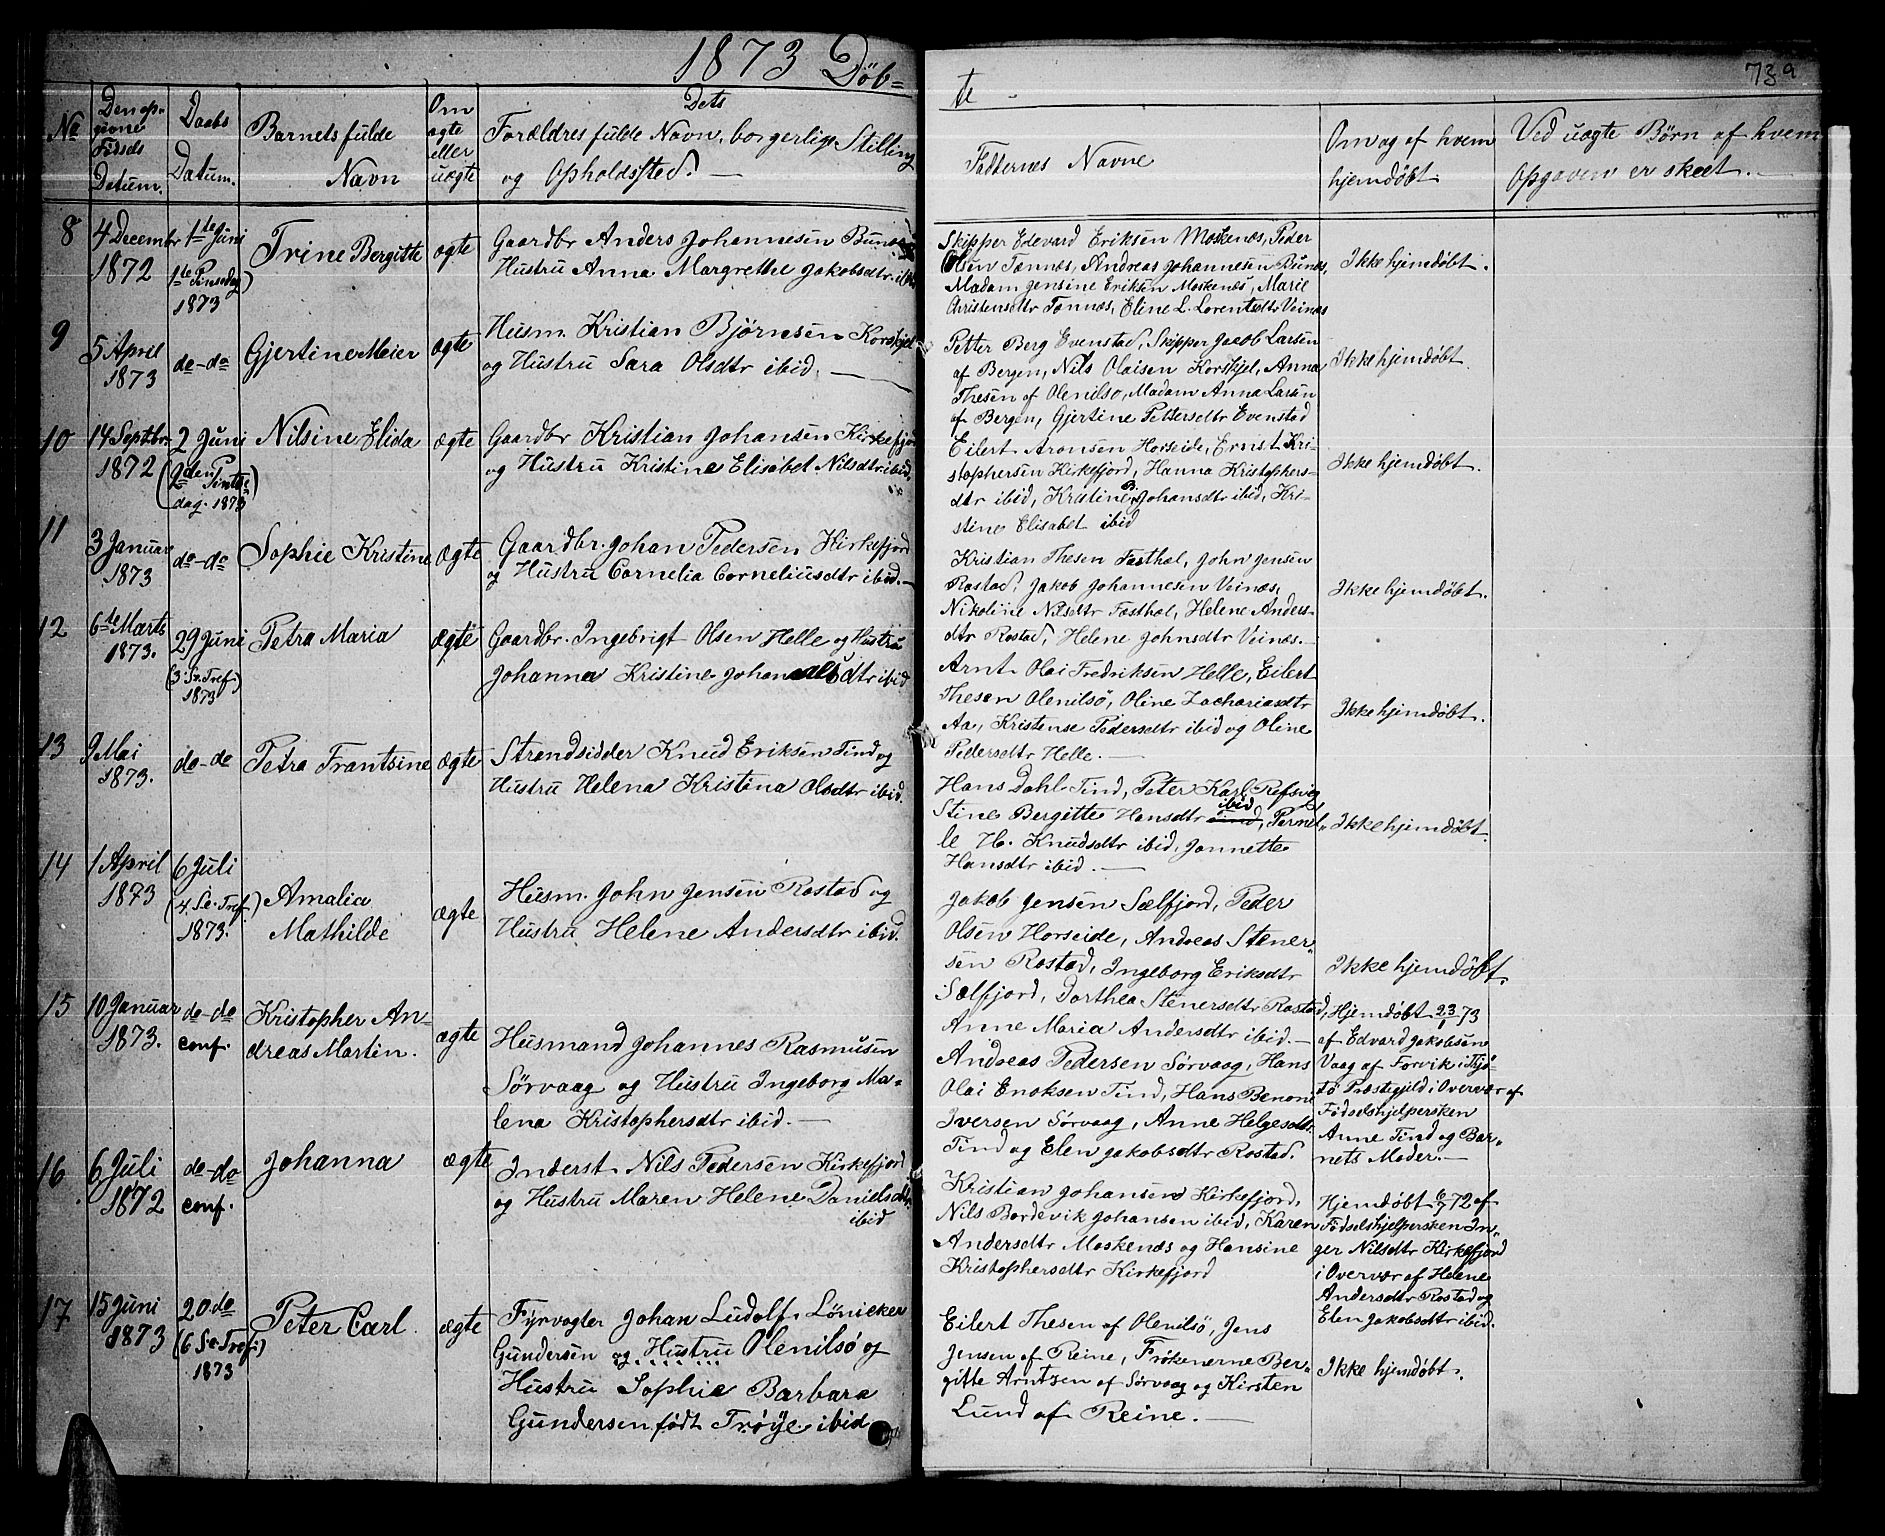 1873 Döb-
te
73a
No
Den op-
givne
Födsels
Datum.
Daabs
Datum.
Barnets fulde
Navn
Om
ægte
eller
uægte
Dets
Forældres fulde Navn, borgerlige Stilling
og Opholdssted. —
Fadernes Navne
Om og af hvem
hjemdøbt
Ved uægte Børn af hvem
Opgaven er skeet. —
8
4 Decembr
1872
1te Juni
1te Pinsedag)
1873
Trine Bergitte
ægte
Gaardbr Anders Johannesen Bunæs
Hustru Anna Margrethe Jakobsdtr ibid
Skipper Edevard Eriksen Moskenæs, Peder
Olsen Tennæs, Andreas Johannesen Bunæs,
Madam Jensine Eriksen Moskenæs, Marie
Christensdtr Tennæs, Eline L. Lorentsdtr Veinæs
Ikke hjemdøbt.
9
5 April
1873
do-do
Gjertine Meier
ægte
Husm. Kristian Bjørnsen Korshjel
og Hustru Sara Olsdtr ibid. —
Petter Berg Evenstad, Skipper Jacob Larsen
af Bergen, Nils Olaisen Korshjel, Anna
Thesen af Olenilsö, Madam Anna Larsen
af Bergen, Gjertine Pettersdtr Evenstad
Ikke hjemdøbt.
10
14 Septbr.
1872
2 Juni
(2den Pintse-
dag. 1873)
Nilsine Elida
ægte
Gaardbr Kristian Johansen Kirkefjord
og Hustru Kristine Elisabet Nilsdtr ibid.
Eilert Aronsen Horseide, Ernst Kri-
stophersen Kirkefjord, Hanna Kristophers-
dtr ibid, Kristine B. Johansdtr ibid, Kri-
stine Elisabet ibid
Ikke hjemdøbt.
11
3 Januar
1873
do-do
Sophie Kristine
ægte
Gaardbr. Johan Pedersen Kirkefjord
og Hustru Cornelia Corneliusdtr ibid. —
Kristian Thesen Fasthal, John Jensen
Rostad, Jakob Johannesen Veinæs,
Nikoline Nilsdtr Fasthal, Helene Anders-
dtr Rostad, Helene Johnsdtr Veinæs. —
Ikke hjemdøbt.
12
6te Marts
1873.
29 Juni
(3 S.e. Tref.)
1873
Petra Maria
ægte
Gaardbr. Ingebrigt Olsen Helle og Hustru
Johanna Kristine Johannesdtr ibid
Arnt Olai Fredriksen Helle, Eilert
Thesen Olenilsö, Oline Zachariasdtr
Aa, Kristense Pedersdtr ibid og Oline
Pedersdtr Helle. —
Ikke hjemdøbt.
13
9 Mai
1873.
do-do
Petra Frantsine
ægte
Strandsidder Knud Eriksen Tind og
Hustru Helena Kristina Olsdtr ibid.
Hans Dahl Tind, Peter Karl Refsvig
Stine Bergitte Hansdtr ibid, Pernel-
le H. Knudsdtr ibid, Jannette
Hansdtr ibid. —
Ikke hjemdøbt
14
1 April
1873
6 Juli
(4. S.e. Tref.)
1873.
Amalia
Mathilde
ægte
Husm. John Jensen Rostad og
Hustru Helene Andersdtr ibid.
Jakob Jensen Sælfjord, Peder
Olsen Horseide, Andreas Stener-
sen Rostad, Ingeborg Eriksdtr
Sælfjord, Dorthea Stenersdtr Rostad,
Anne Maria Andersdtr ibid. —
Ikke hjemdøbt.
15
10 Januar
1873.
do-do
conf.
Kristopher An-
dreas Martin.
ægte
Husmand Johannes Rasmusen
Sörvaag og Hustru Ingeborg Ma-
lena Kristophersdtr ibid. —
Andreas Pedersen Sörvaag, Hans
Olai Enoksen Tind, Hans Benone
Iversen Sörvaag, Anne Helgesdtr
Tind og Elen Jakobsdtr Rostad.
Hjemdøbt 23/1 73
af Edvard Jakobsen
Vaag af Forvik i Thjö-
tö Præstegjeld i Overvær af
Fødselshjelpersken
Anne Tind og Bar-
nets Moder. —
16
6 Juli
1872
do-do
conf.
Johanna
ægte
Inderst Nils Pedersen Kirkefjord
og Hustru Maren Helene Danielsdtr
ibid
Kristian Johansen Kirkefjord,
Nils Bordevik Johansen ibid, Karen
Andersdtr Moskenæs og Hansine
Kristophersdtr Kirkefjord
Hjemdøbt 6/7 72 af
Fødselshjelpersken In-
ger Nilsdtr Kirkefjord
i Overvær af Helene
Andersdtr Rostad og
Elen Jakobsdtr ibid.
17
15 Juni
1873
20 do
(6 S.e Tref.)
1873
Peter Carl.
ægte
Fyrvogter Johan Ludolf Lönicker
Gundersen og Hustru Olenilsö og
Hustru Sophie Barbara
Gundersen født Trøye ibid
Eilert Thesen af Olenilsö, Jens
Jensen af Reine, Frøknerne Ber-
gitte Arntzen af Sörvaag og Kirsten
Lund af Reine. —
Ikke hjemdøbt.